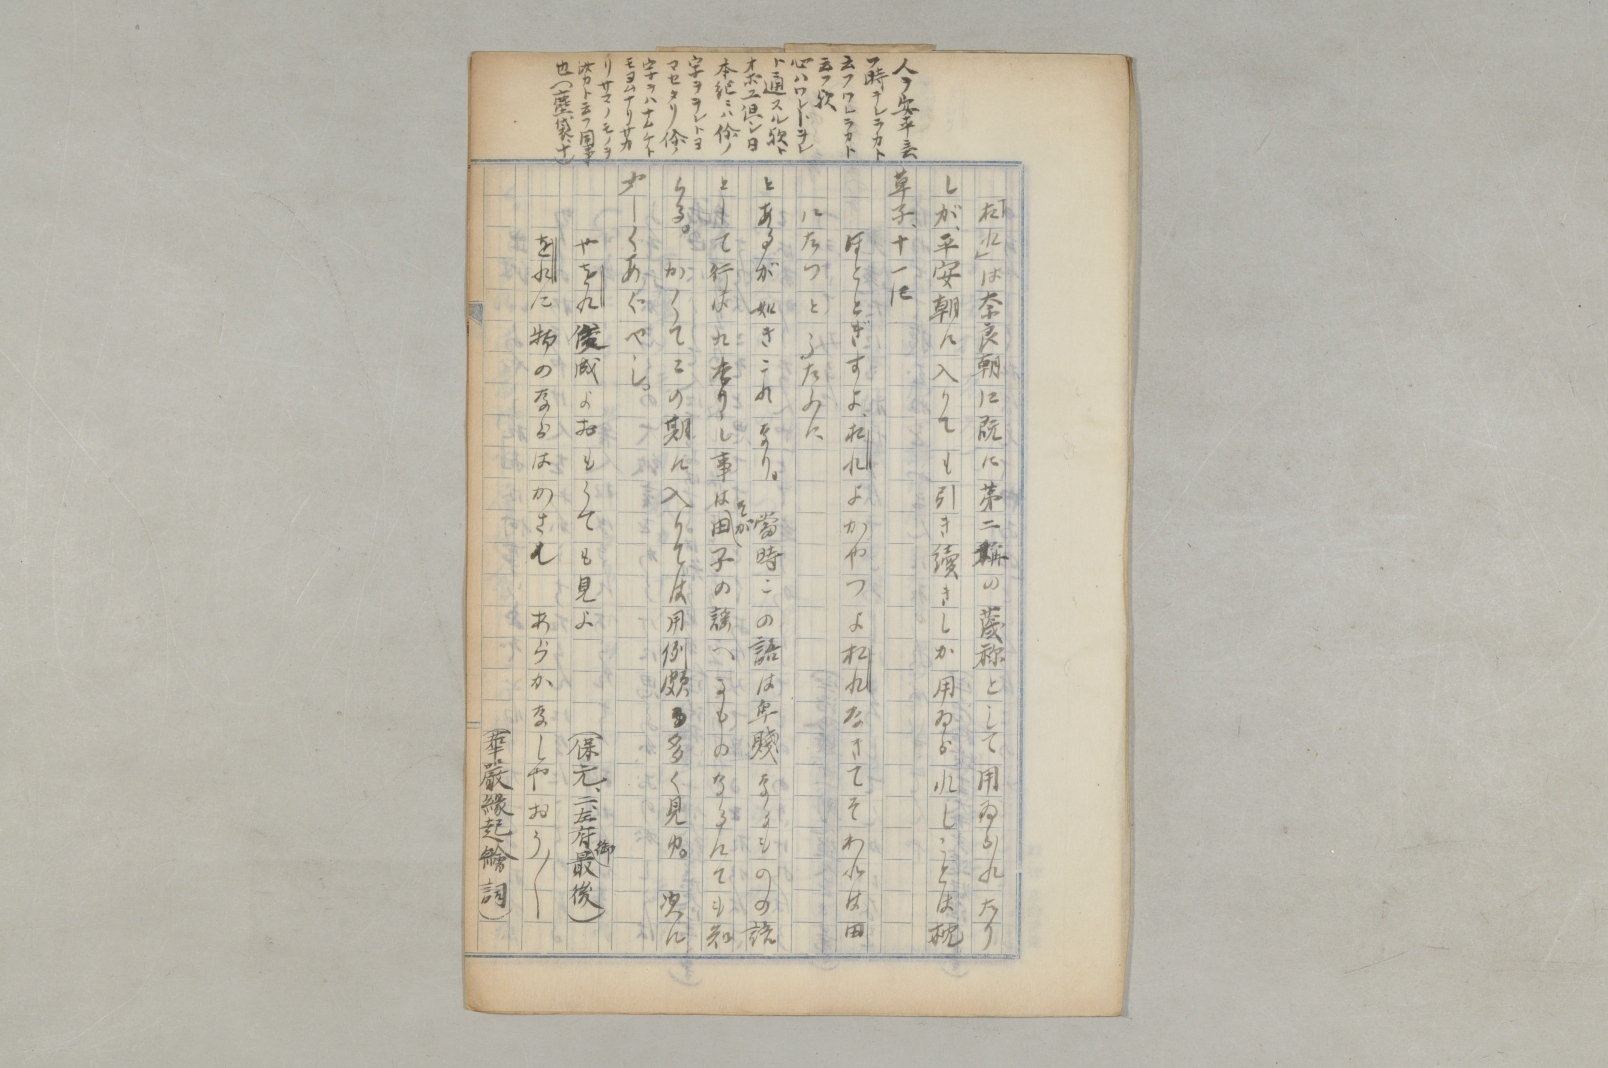 人ヲ安平ニ云
フ時ヲレラカト
云フワレラカト
云フ歟
心ハワレトヲレ
ト通スル歟ト
オボエ侯ソ日
本紀ニハ你ノ
字ヲヲレトヨ
マセタリ你ノ
字ヲハナムケト
モヨムナリサカ
リサマノモノヲ
汝カト云フ同事
也(塵袋、十)
「おれ」は奈良朝に既に第二稱の蔑称として用ゐられたり
しが、平安朝に入りても引き續きしか用ゐられしことは枕
草子、十一に
ほととぎすよ、おれよかやつよおれなきてそわれは田
にたつとうたふに
とあるが如きこれなり。當時この語は卑賤なるものの語
として行はれ居りし事は田子の謠へるものなるにても知
らる。かくてこの期に入りては用例頗る多く見ゆ。次に
少しくあぐべし。
やをれ俊成よおもてても見よ
(保元、二、左府御最後)
をれに物のならはかさむ あらかなしやおう〳〵
(華嚴緣起繪詞)